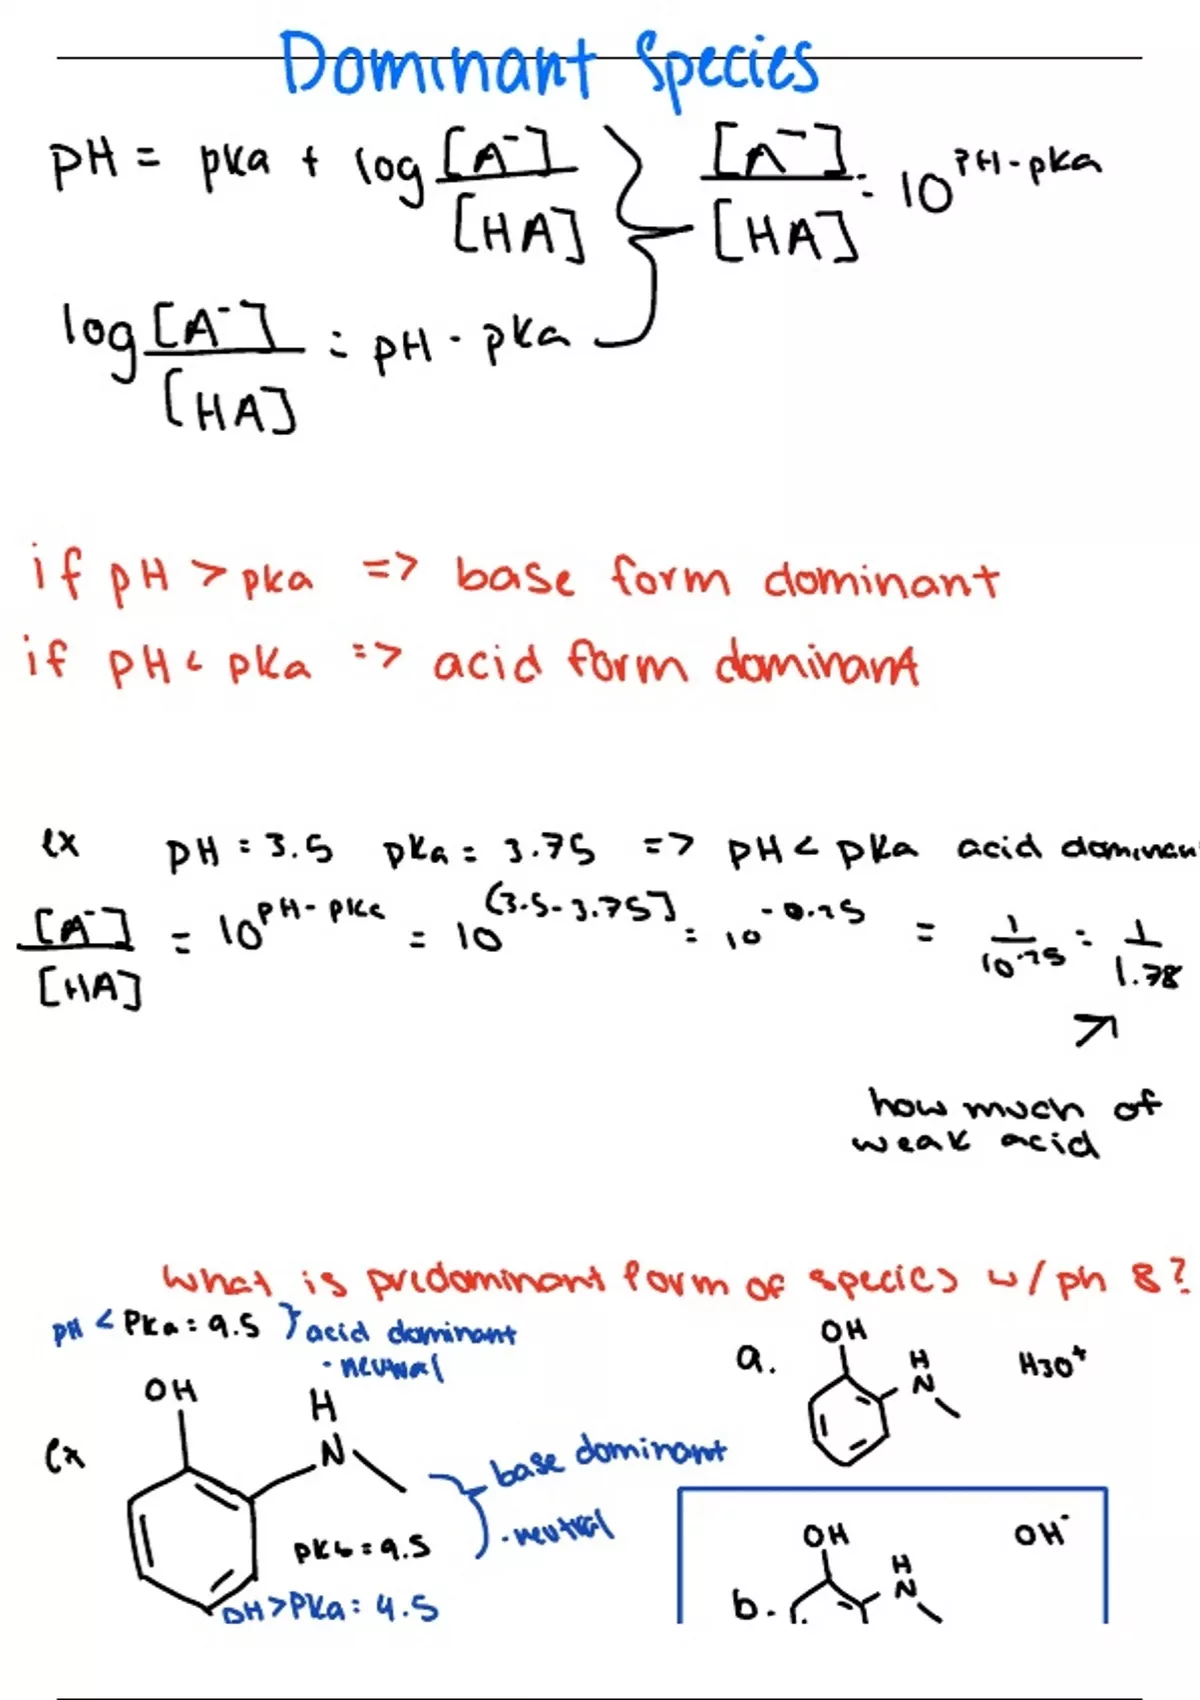 Dominant Species
pH = pka + log [A⁻]/[HA] } [A⁻]/[HA] = 10^pH-pka
log [A⁻]/[HA] = pH - pka
if pH > pka => base form dominant
if pH < pka => acid form dominant
ex pH = 3.5 pka = 3.75 => pH < pka acid dominan
[A⁻]/[HA] = 10^pH-pka = 10^(3.5-3.75] = 10^-0.25 = 1/10^.25 = 1/1.78
how much of
weak acid
what is predominant form of species w/ ph 8?
pH < Pka = 9.5 } acid dominant
· neutral
OH
H
N
ex
base dominant
· neutral
pkb = 9.5
pH > Pka = 4.5
a.
OH
H
N
H3O⁺
b.
OH
H
N
OH⁻